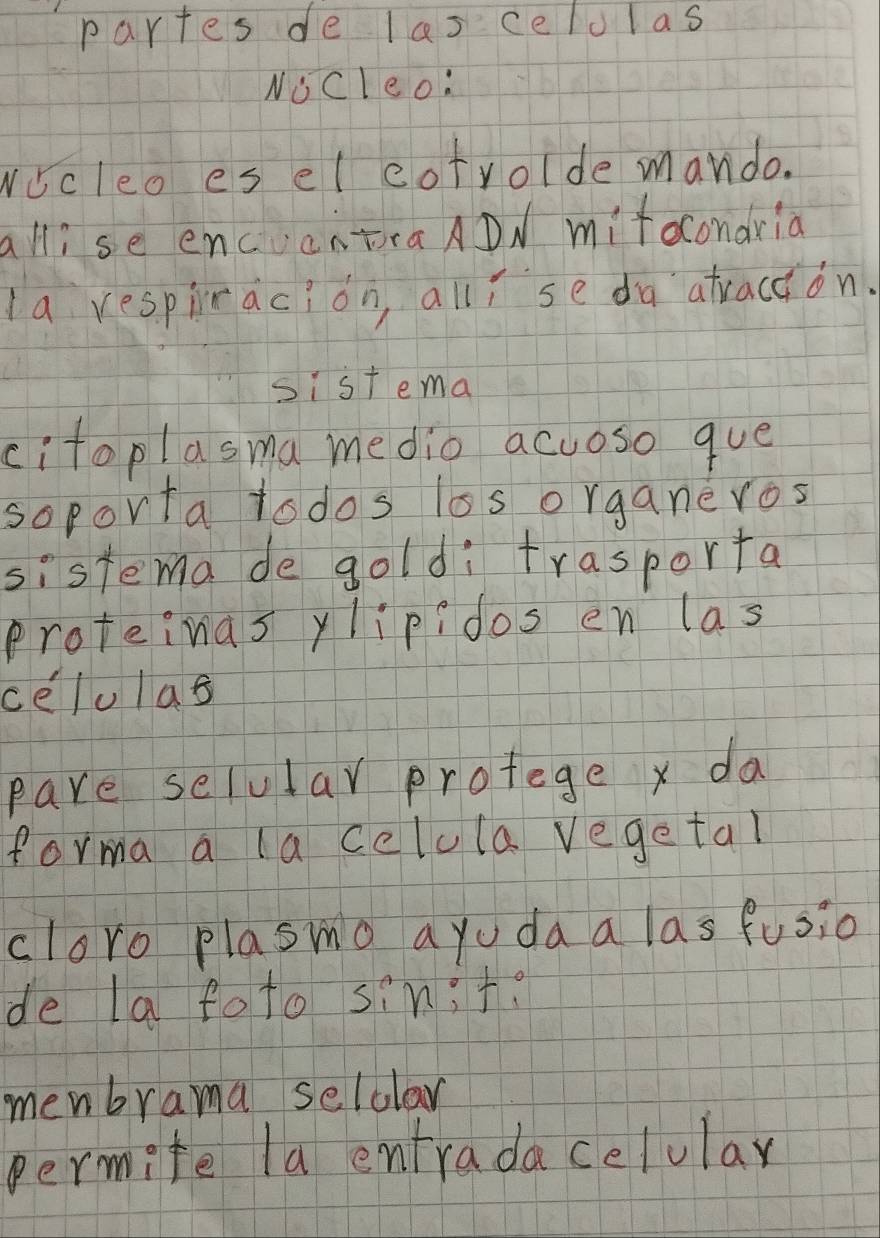 partes de las celulas
Núcleo:
Núcleo es el cotrol de mando.
alli se encuantra ADN mitocondria
la respiración, allí se da atracción.
sistema
citoplasma medio acuoso que
soporta todos los organeros
sistema de goldi trasporta
proteinas y lipidos en las
células
pare selular protege y da
forma a la celula vegetal
cloro plasmo ayuda a las fusio
de la foto siniti
menbrama selular
permite la entrada celular